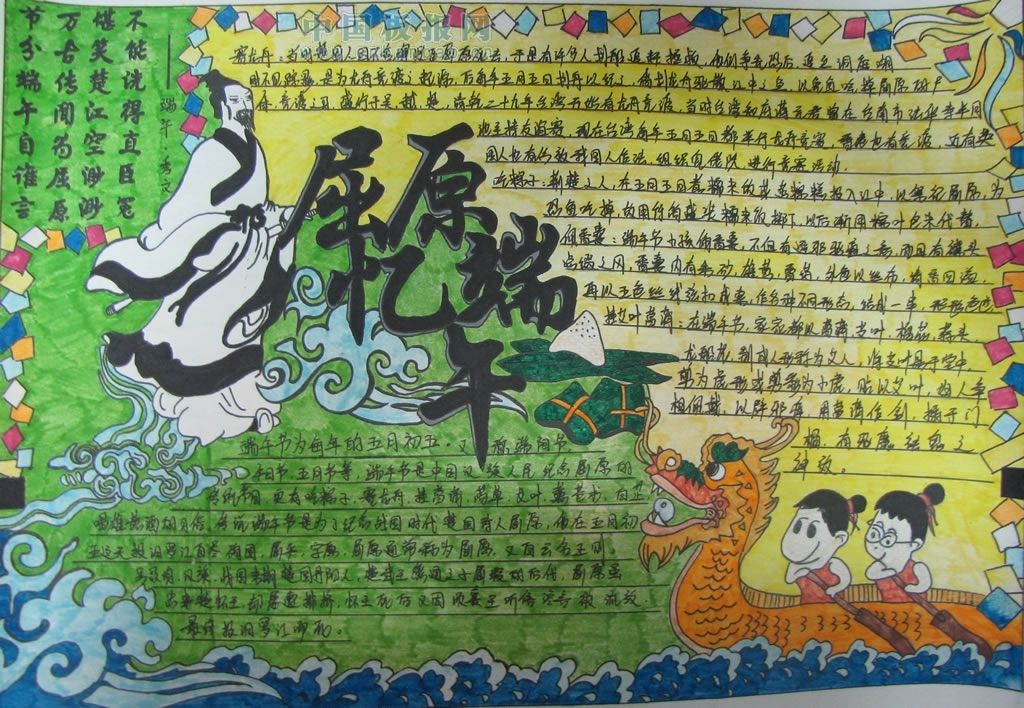 节分端午自谁言
万古传闻为屈原
堪笑楚江空渺渺
不能洗得直臣冤
——端午·秀文
屈原
忆端
午
赛龙舟:当时楚国人因不舍贤臣屈原死去,于是有许多人划船追赶拯救。他们争先恐后,追至洞庭湖
时不见踪迹,是为龙舟竞渡之起源,后每年五月五日划舟以纪之,借划龙舟驱散江中之鱼,以免鱼吃掉屈原的尸
体。竞渡之习,盛行于吴、越、楚。乾隆二十九年台湾开始有龙舟竞渡,当时台湾知府蒋元君曾在台南市法华寺半月
池主持友谊赛。现在台湾每年五月五日都举行龙舟竞赛。
国人也有仿效我国人作法,组织鬼佬队,进行竞赛活动。
吃粽子:荆楚之人,在五月五日煮糯米饭或蒸粽糕投入江中,以祭祀屈原,为
恐鱼吃掉,故用竹筒盛装糯米饭掷下,以后渐用粽叶包米代替。
佩香囊:端午节小孩佩香囊,不但有避邪驱瘟之意,而且有襟头
点缀之风。香囊内有朱砂、雄黄、香药,外包以丝布,清香四溢,
再以五色丝线弦扣成索,作各种不同形态,结成一串,形形色色。
悬艾叶菖蒲:在端午节,家家都以菖蒲、艾叶、榴花、蒜头、
龙船花,制成人形称为艾人。将艾叶悬于堂中,
剪为虎形或剪彩为小虎,贴以艾叶,妇人争
相佩戴,以辟邪驱瘴。用菖蒲作剑,插于门
楣,有驱魔祛鬼之
神效。
端午节为每年的五月初五,又称端阳节、
午日节、五月节等,端午节是中国汉族人民纪念屈原的
传统节日,更有吃粽子,赛龙舟,挂菖蒲、艾叶,薰苍术、白芷,
喝雄黄酒的习俗。传说端午节是为了纪念战国时代楚国诗人屈原,他在五月初
五这天投汨罗江自尽殉国。屈原
马,汉族,战国末期楚国丹阳人,楚武王熊通之子屈瑕的后代。屈原虽
忠事楚怀王,却屡遭排挤,怀王死后又因顷襄王听信谗言而被流放,
最终投汨罗江而死。